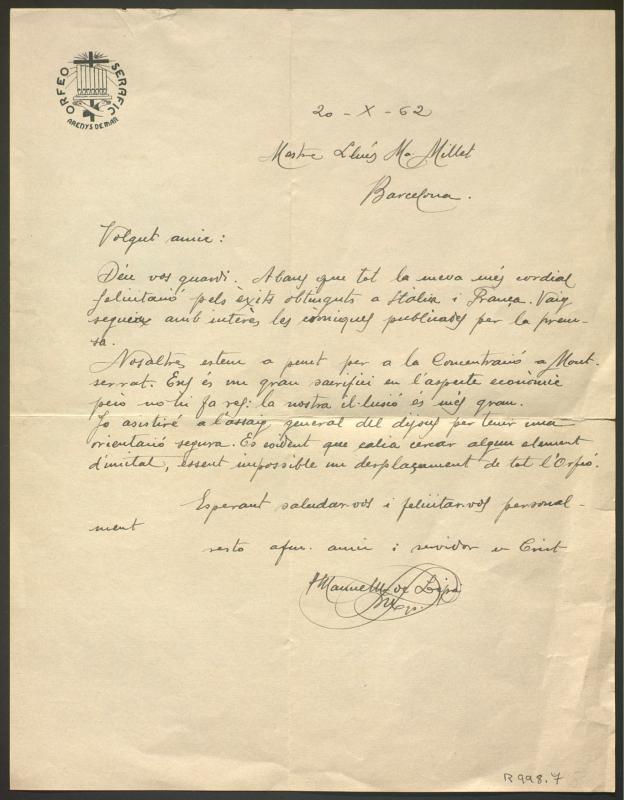 ORFEO SERAFIC
ARENYS DE MAR
20 - X - 62
Mestre Lluís Mª Millet
Barcelona.
Volgut amic:
Déu vos guardi. Abans que tot la meva més cordial
felicitació pels èxits obtinguts a Itàlia i França. Vaig
seguint amb interès les cròniques publicades per la prem-
sa.
Nosaltres estem a punt per a la Concentració a Mont-
serrat. Ens és un gran sacrifici en l'aspecte econòmic
però no hi fa res: la nostra il·lusió és més gran.
Jo asistiré a l'assaig general del dijous per tenir una
orientació segura. És evident que calia cercar algun element
d'unitat, essent impossible un desplaçament de tot l'Orfeó.
Esperant saludar-vos i felicitar-vos personal-
ment
resto afm. amic i servidor en Crist
Manuel
R 998.7